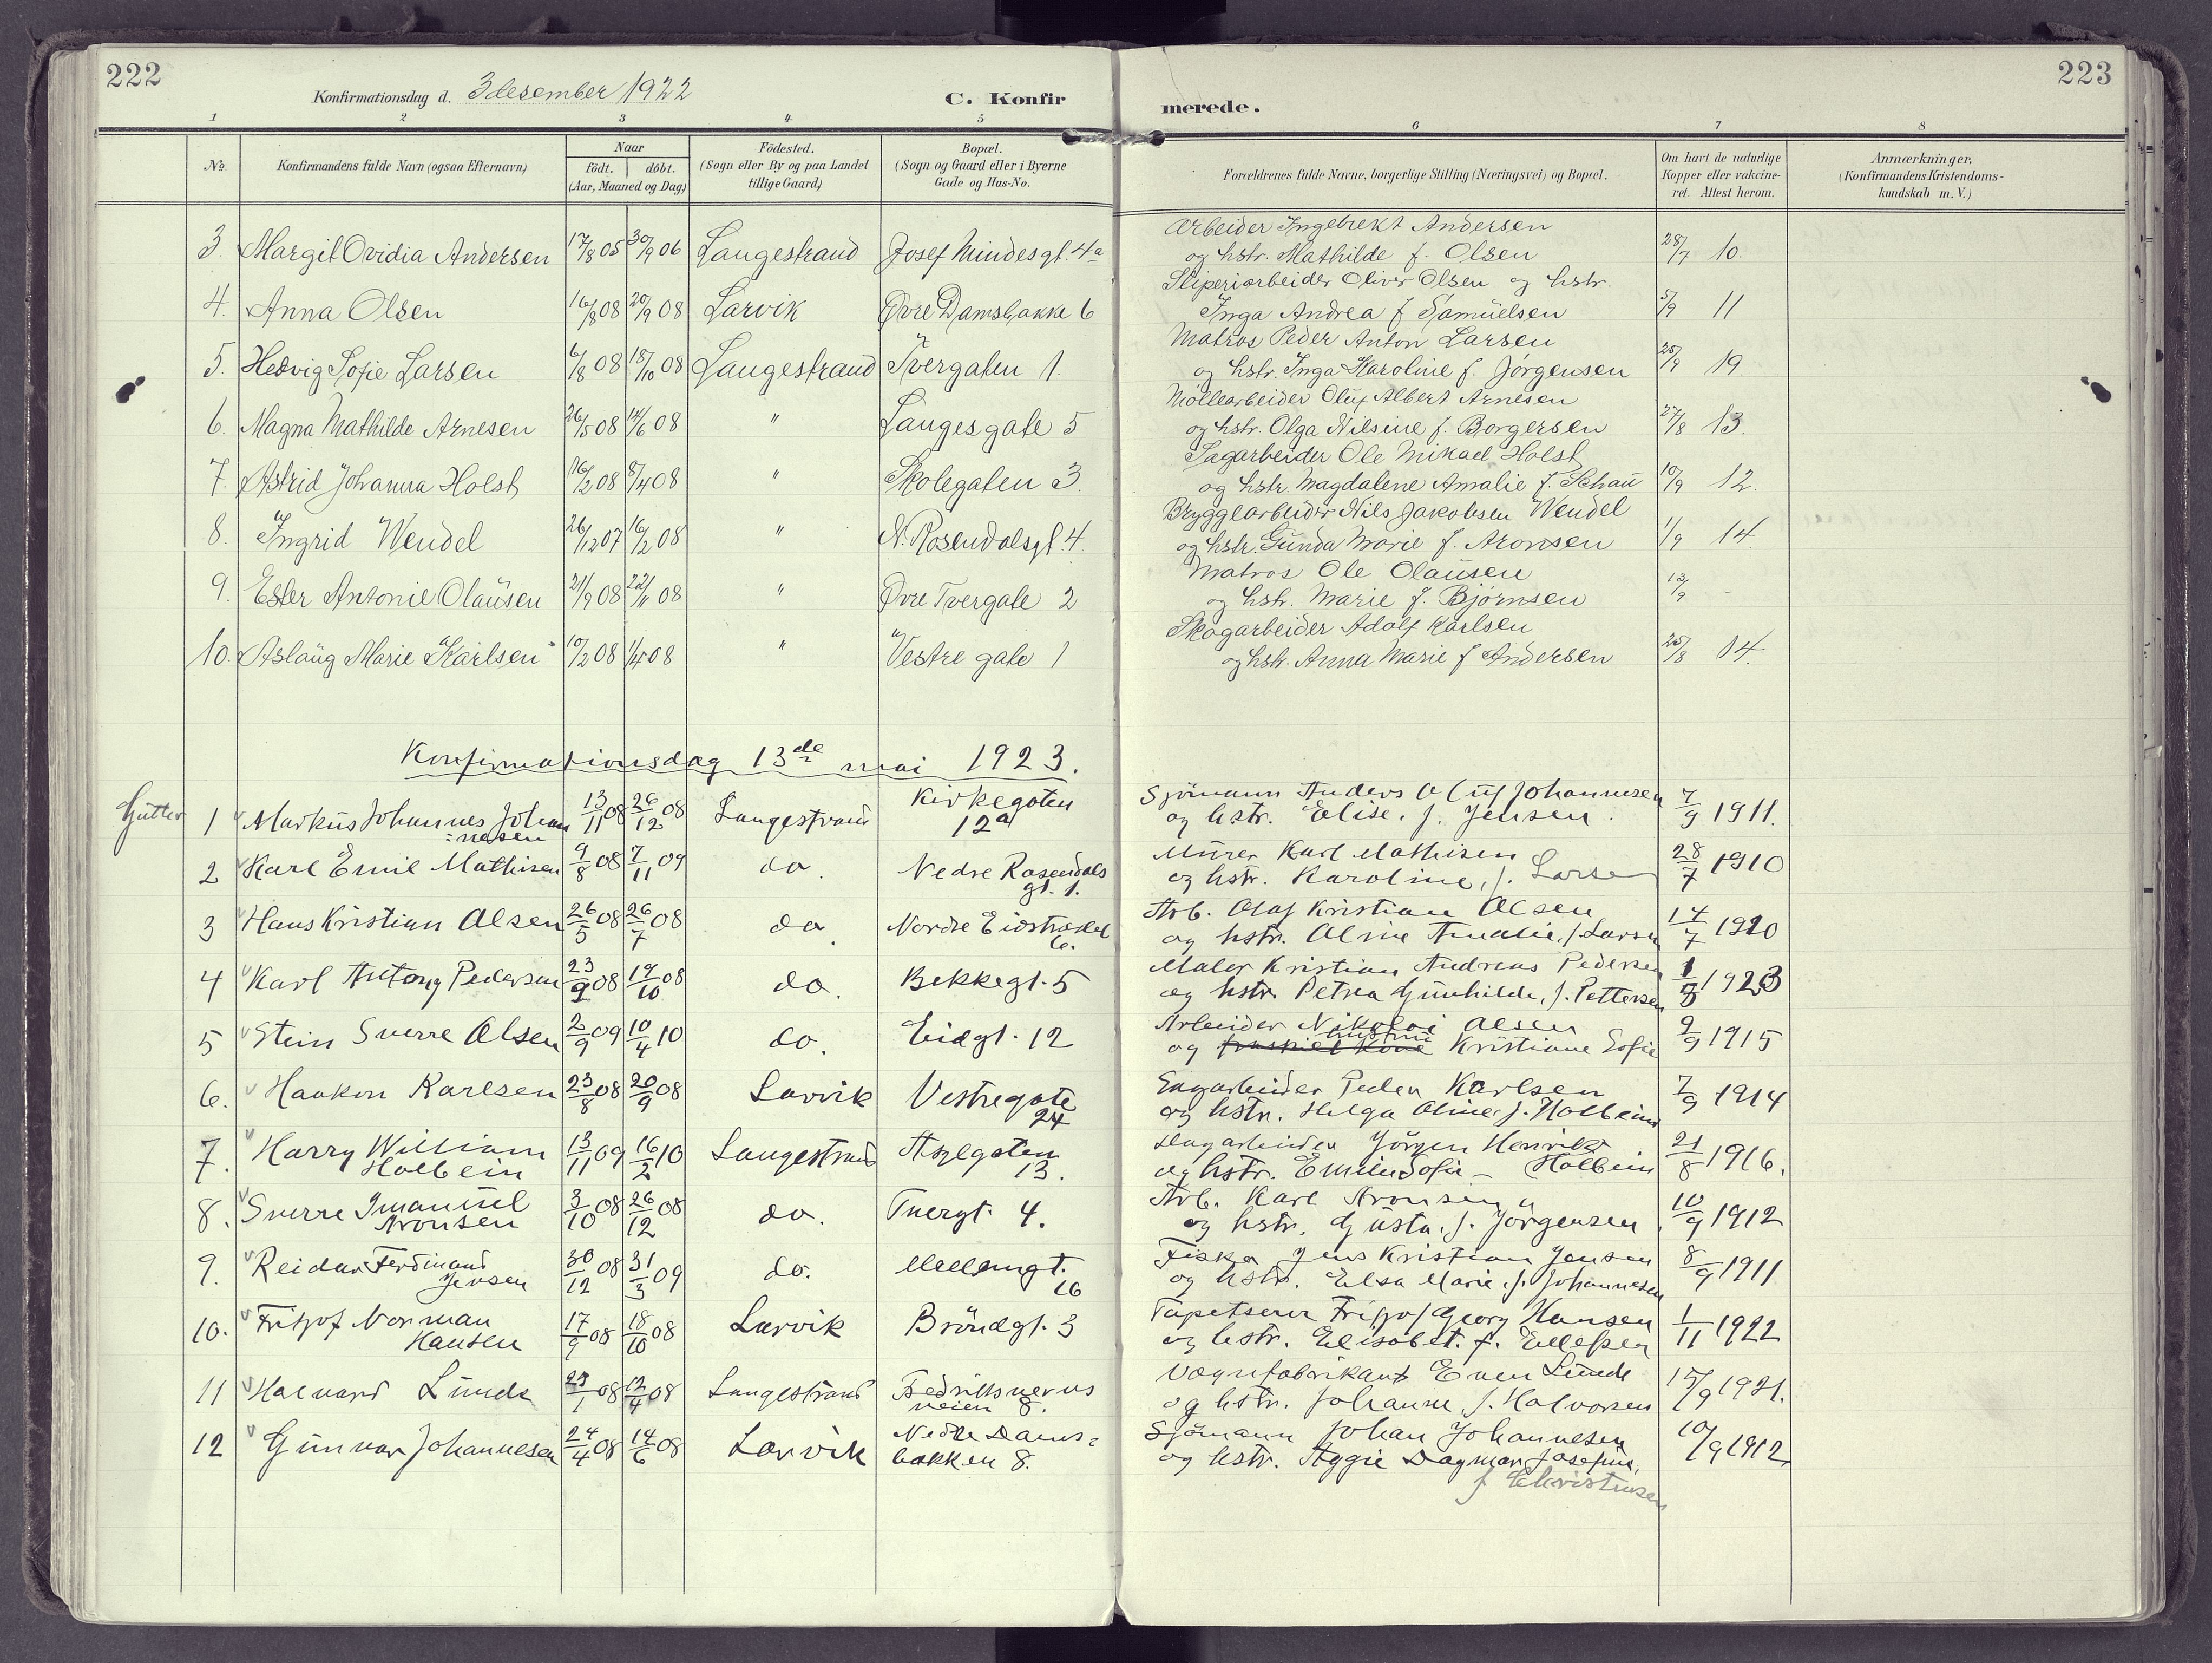 222
Konfirmationsdag d. 3 desember 1922
C. Konfir
merede.
223
1 2 3 4 5 6 7 8
No.
Konfirmandens fulde Navn (ogsaa Efternavn)
Naar
födt. döbt.
(Aar, Maaned og Dag)
Födested.
(Sogn eller By og paa Landet
tillige Gaard)
Bopæl.
(Sogn og Gaard eller i Byerne
Gade og Hus-No.
Forældrenes fulde Navne, borgerlige Stilling (Næringsvei) og Bopæl.
Om havt de naturlige
Kopper eller vakcine-
ret. Attest herom.
Anmærkninger.
(Konfirmandens Kristendoms-
kundskab m. V.)
Arbeider Ingebrekt Andersen
3. Margit Ovidia Andersen 17/8 05 30/9 06 Langestrand Josef Mindesgt. 4a og hstr. Mathilde f. Olsen 28/7 10.
Sliperiarbeider Oliver Olsen og hstr.
4. Anna Olsen 16/8 08 20/9 08 Larvik Øvre Damsbakke 6 Inga Andrea f Samuelsen 5/9 11
Matros Peder Anton Larsen
5. Hedvig Sofie Larsen 6/8 08 18/10 08 Langestrand Tvergaten 1. og hstr. Inga Karoline f. Jørgensen 25/9 19.
Møllearbeider Oluf Albert Arnesen
6. Magna Mathilde Arnesen 26/5 08 14/6 08 " Langesgate 5 og hstr. Olga Nilsine f. Borgersen 27/8 13.
Sagarbeider Ole Mikael Holst
7. Astrid Johanna Holst 16/2 08 8/4 08 " Skolegaten 3. og hstr. Magdalene Amalie f. Schau 10/9 12.
Bryggearbeider Nils Jakobsen Wendel
8. Ingrid Wendel 26/12 07 16/2 08 " N. Rosendalsgt. 4. og hstr. Gunda Marie f. Aronsen 1/9 14.
Matros Ole Olausen
9. Ester Antonie Olausen 21/9 08 22/11 08 " Øvre Tvergate 2 og hstr. Marie f. Bjørnsen 13/9 -
Skogarbeider Adolf Karlsen
10. Aslaug Marie Karlsen 10/2 08 1/4 08 " Vestre gate 1 og hstr. Anna Marie f Andersen 25/8 14.
Konfirmationsdag 13de mai 1923.
Gutter
1 Markus Johannes Johan 13/11 08 26/12 08 Langestrand Kirkegaten Sjömann Anders Oluf Johannesen 7/9 1911.
=nesen 12a og hstr. Elise. f. Jensen.
2 Karl Emil Mathisen 9/8 08 7/11 09 do. Nedre Rosendals Murer Karl Mathisen 28/7 1910
gt. 1. og hstr. Karoline, f. Larsen
3 Hans Kristian Olsen 26/5 08 26/7 08 do. Nordre Arb. Olaf Kristian Olsen 14/7 1920
6. og hstr. Oline Amalie, f. Larsen
4 Karl Antony Pedersen 23/9 08 19/10 08 do. Bekkegt. 5 Maler Kristian Andreas Pedersen 1923
og hstr. Petra Gunhilde, f. Pettersen
5 Stein Sverre Olsen 2/9 09 10/4 10 do. Eidgt. 12 Arbeider Nikolai Olsen 9/9 1915
og hustru Kristiane Sofie
6. Haakon Karlsen 23/8 08 20/9 08 Larvik Vestregate Sagarbeider Peder Karlsen 7/9 1914
24 og hstr. Helga Oline f. Holbein
7. Harry William 13/11 09 16/2 10 Langestrand Asylgaten Sagarbeider Jörgen Henrik 21/8 1916.
Holbein 13. og hstr. Emilie Sofie - Holbein
8. Sverre Imanuel 3/10 08 26/12 08 do. Tvergt. 4. Arb. Karl Aronsen 10/9 1912
Aronsen og hstr. Gusta. f. Jörgensen.
9. Reidar Ferdinand 30/12 08 31/3 09 do. Mellemgt. Fisker Jens Kristian Jensen 8/9 1911
Jensen 16 og hstr. Elsa Marie. f. Johannesen
10. Fritjof Norman 17/9 08 18/10 08 Larvik Bröndgt. 3 Tapetserer Fritjof Georg Hansen 1/11 1922
Hansen og hstr. Elisabet. f. Ellefsen
11 Halvard Lunde 29/1 08 12/4 08 Langestrand Fredriksværns Vognfabrikant Even Lunde 15/9 1921.
veien 8. og hstr. Johanne, f. Halvorsen
12 Gunnar Johannesen 24/4 08 14/6 08 Larvik Nedre Dams= Sjömann Johan Johannesen 10/9 1912
bakken 8. og hstr. Aggie Dagmar Josefine,
f Christensen